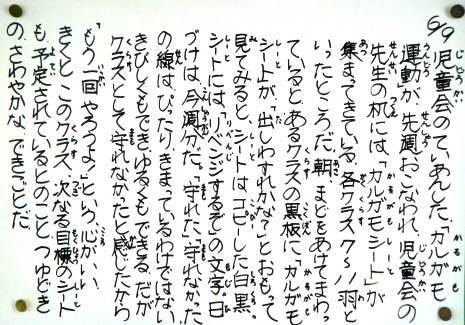 6/9 児童会のていあんした、「カルガモ
運動」が、先週、おこなわれ、児童会の
先生の机には、「カルガモシート」が
集まってきている。各クラス7〜11羽と
いったところだ。朝、まどをあけてまわっ
ていると、あるクラスの黒板に、「カルガモ
シートが、「出しわすれかな?」とおもって
見てみると、シートは、コピーした白黒。
シートには、「リベンジするぞ」の文字。日
づけは、今週分だ。「守れた、守れなかった
の線は、ぴったり、きまっているわけではない。
きびしくもできゆるくもできる。だが
クラスとして守れなかったと感じたから
「もう一回やろうよ!」という、心がいい、
きくと、このクラス、次なる目標のシート
も、予定されているとのこと。つゆどき
の、さわやかな、できごとだ。